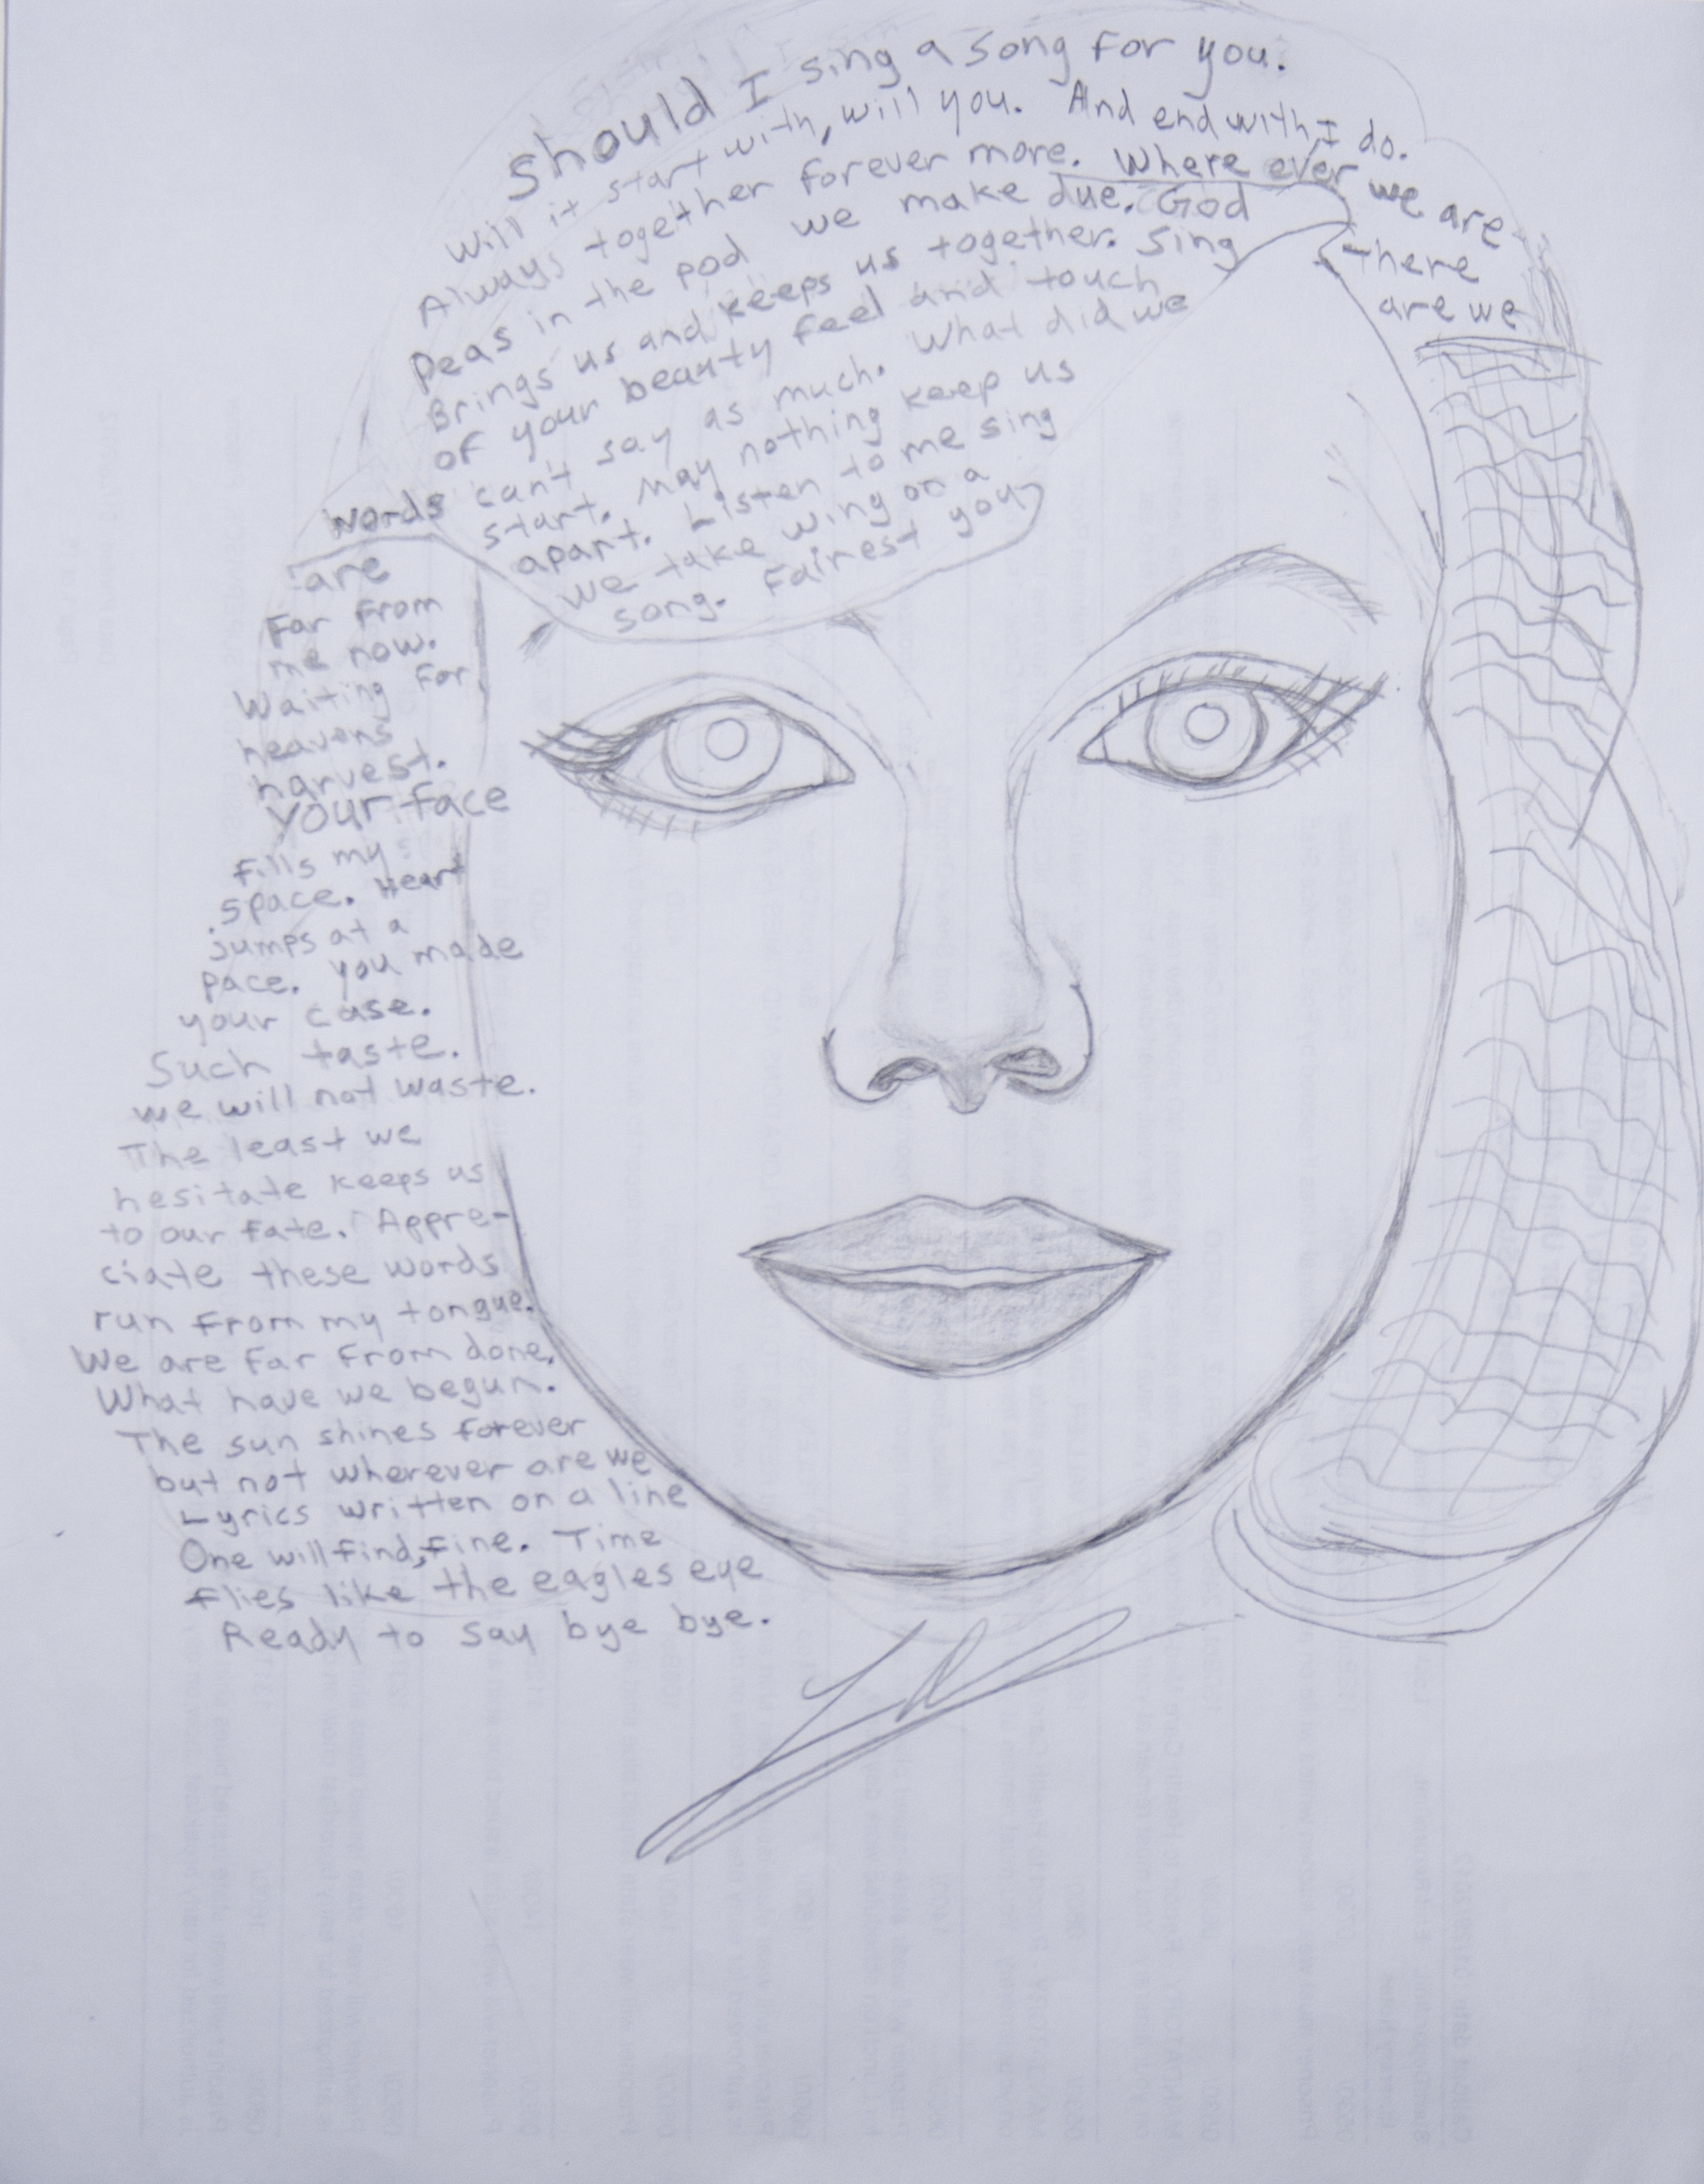 should I sing a song for you.
Will it start with, will you. And end with, I do.
Always together forever more. Where ever we are
there
are we
Peas in the pod we make due. God
Brings us and keeps us together. Sing
of your beauty feel and touch
words can't say as much. What did we
start. May nothing keep us
apart. Listen to me sing
we take wing on a
song. Fairest you
are
Far From
me now.
Waiting for
heavens
harvest.
your face
fills my
space. Heart
jumps at a
pace. you made
your case.
Such taste.
we will not waste.
The least we
hesitate keeps us
to our fate. Appre-
ciate these words
run from my tongue.
We are far from done.
What have we begun.
The sun shines forever
but not wherever are we
Lyrics written on a line
One will find, fine. Time
flies like the eagles eye
Ready to say bye bye.